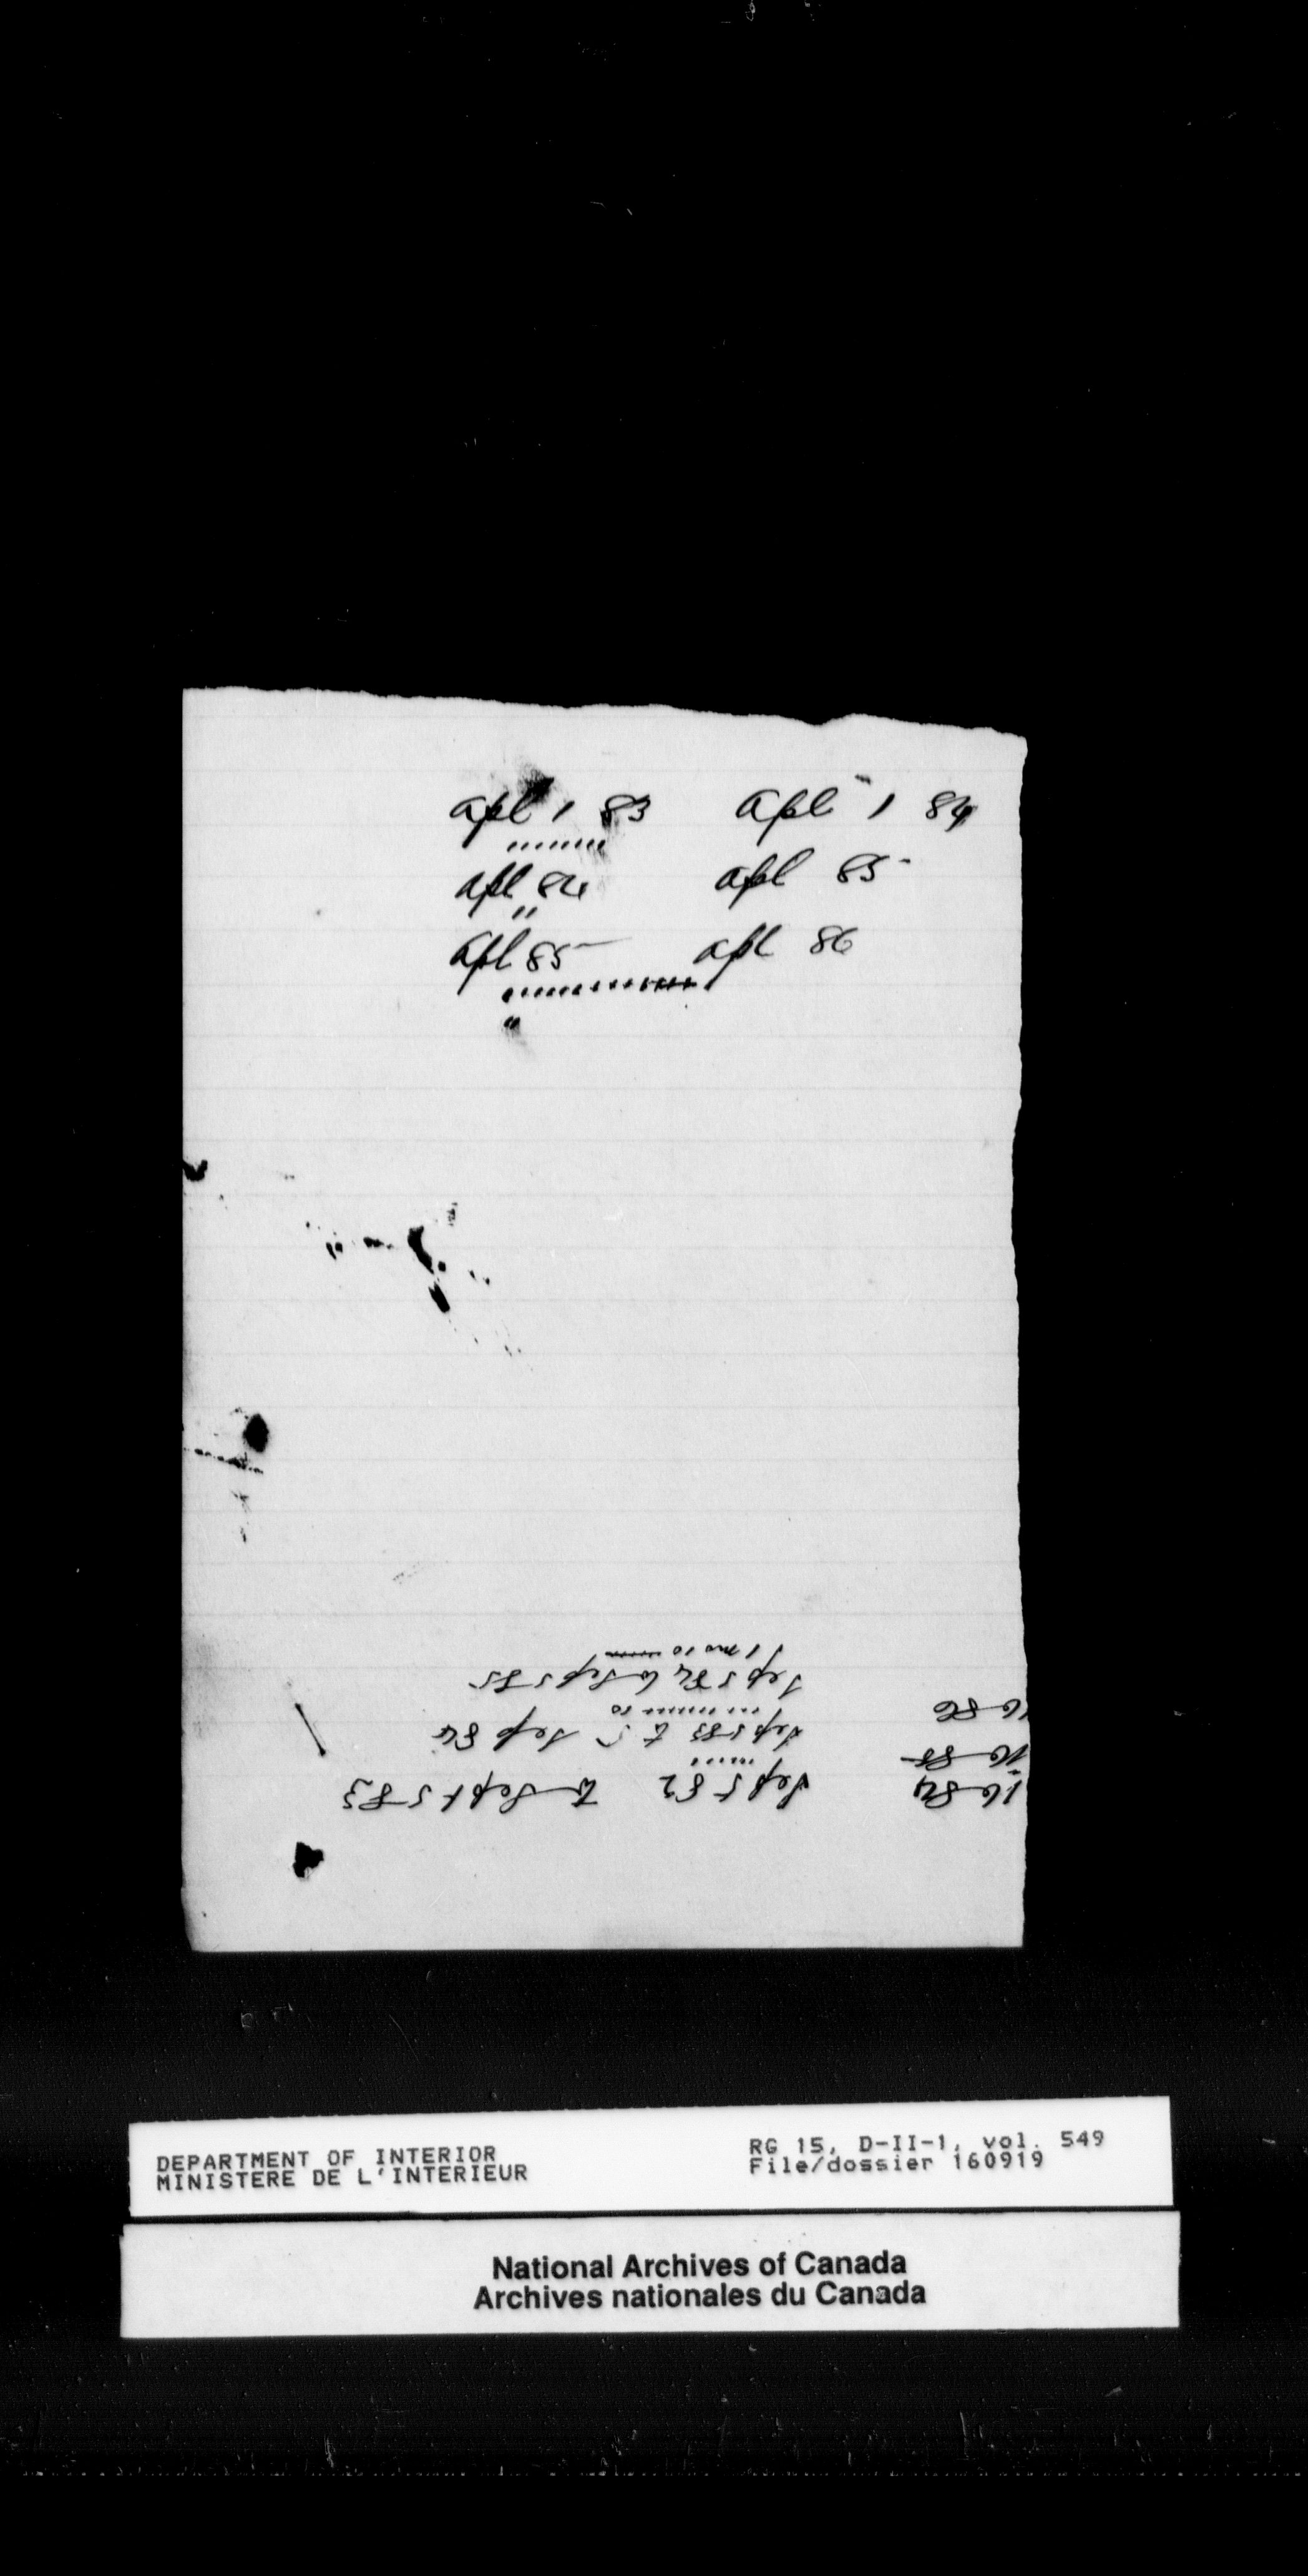 apl 1 83 apl 1 84
apl 84 apl 85
apl 85 apl 86
16 84 Sep 5 82 to Sept 5 83
16 85 Sep 5 83 to 5 Sep 84
16 86 Sep 5 84 to Sep 5 85
1 mo 10
DEPARTMENT OF INTERIOR
MINISTERE DE L'INTERIEUR
RG 15, D-II-1, vol. 549
File/dossier 160919
National Archives of Canada
Archives nationales du Canada